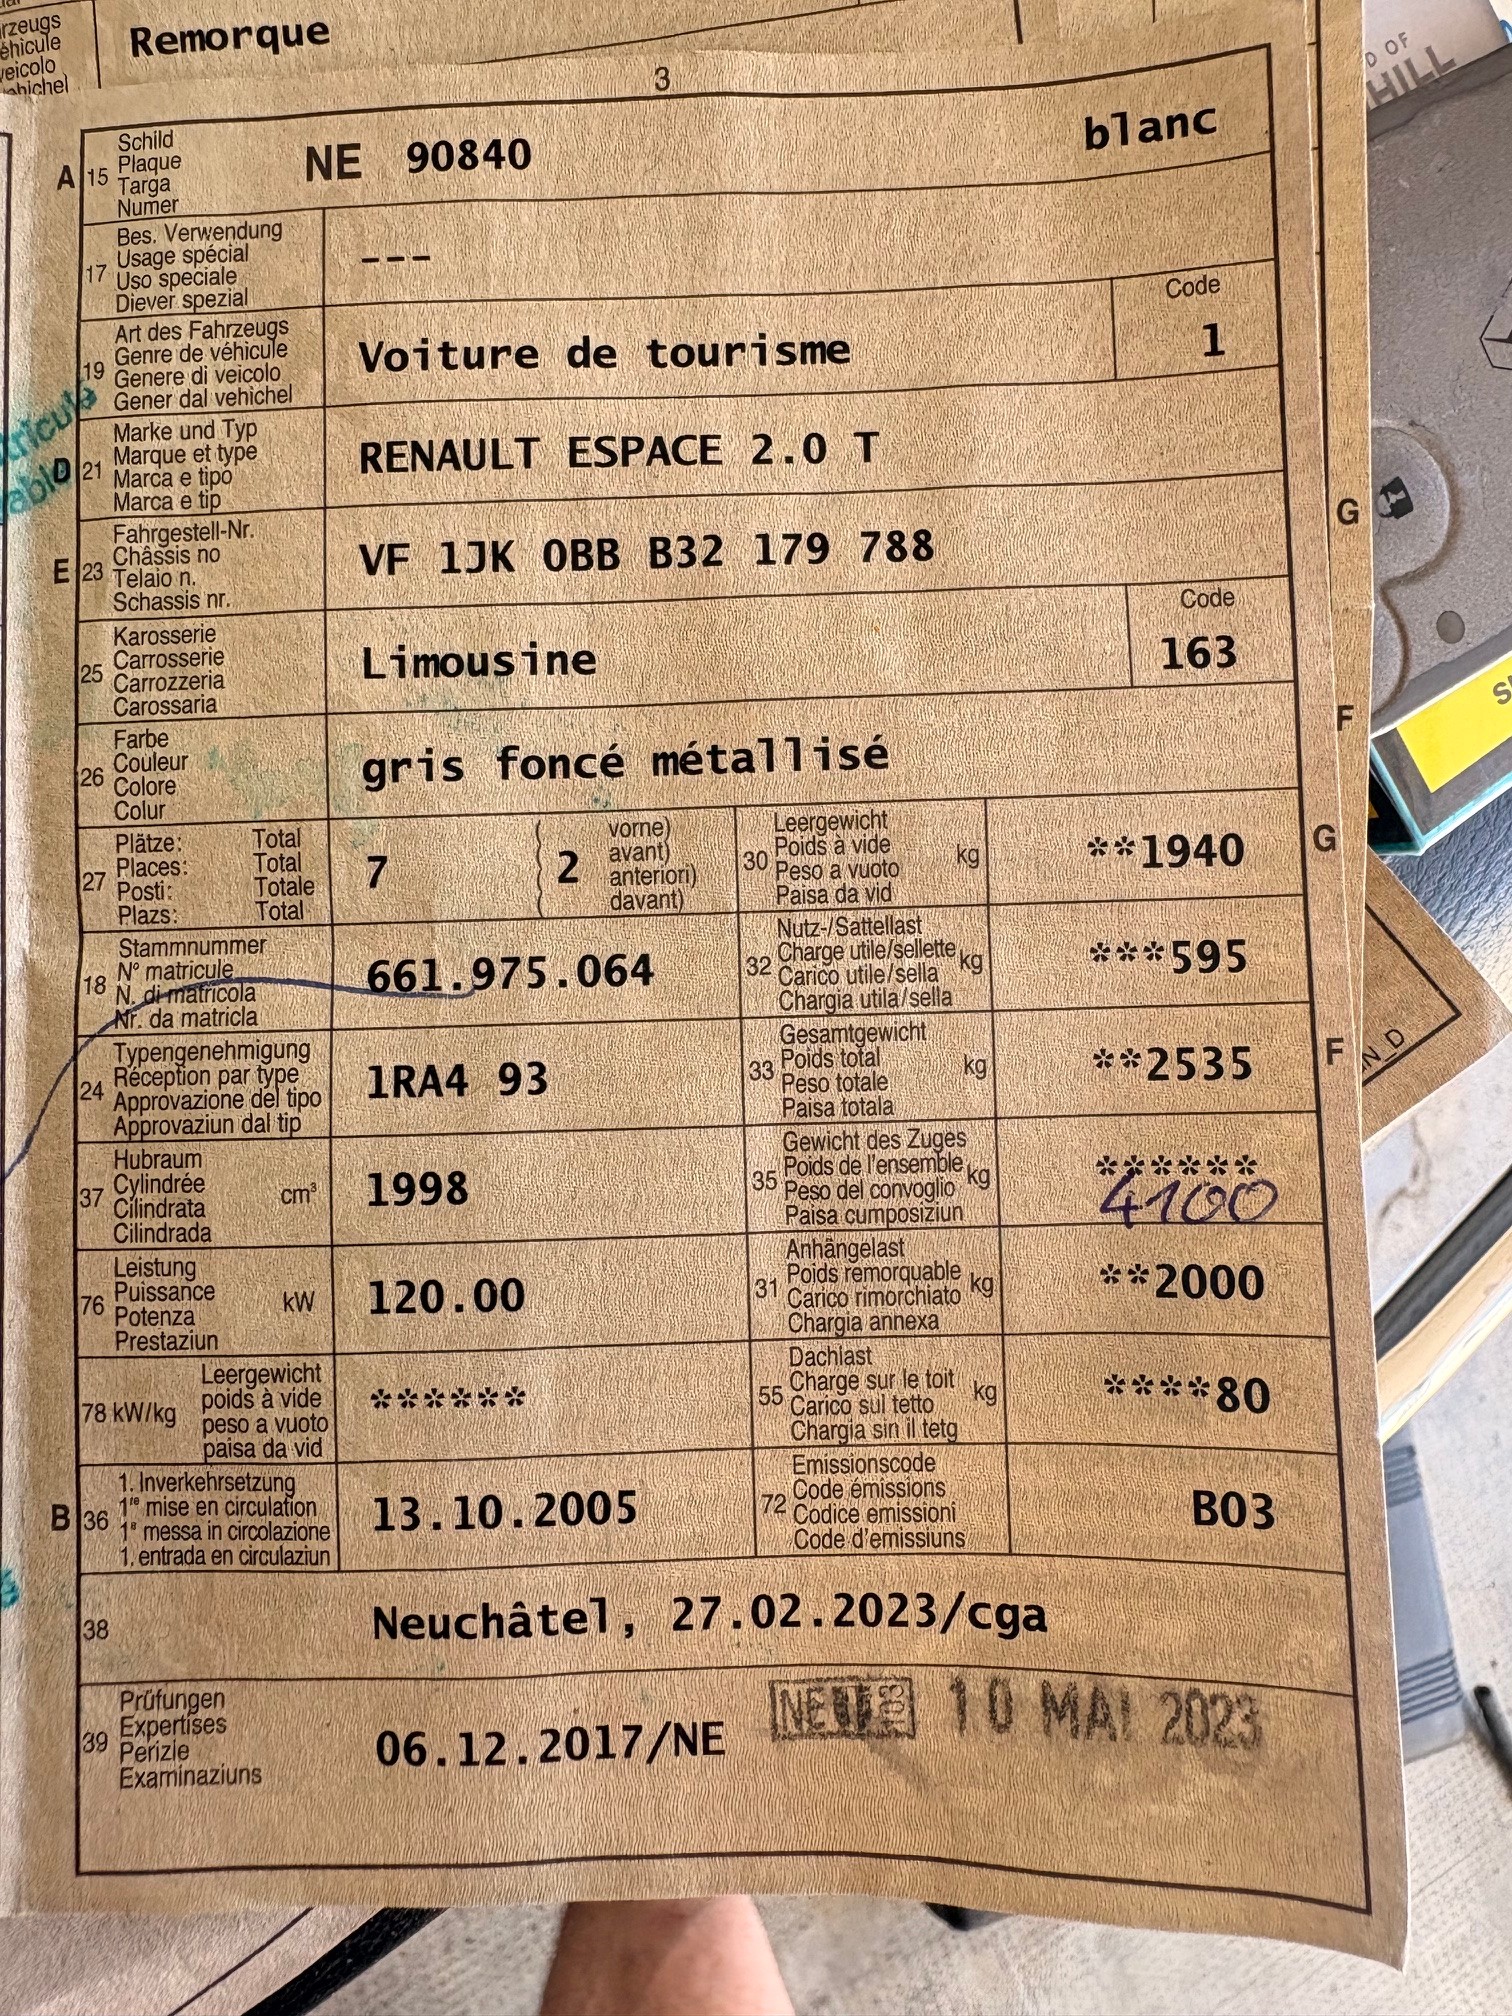 rzeugs
éhicule
veicolo
ehichel
Remorque
3
A 15
Schild
Plaque
Targa
Numer
NE 90840
blanc
17
Bes. Verwendung
Usage spécial
Uso speciale
Diever spezial
---
19
Art des Fahrzeugs
Genre de véhicule
Genere di veicolo
Gener dal vehichel
Voiture de tourisme
Code
1
D 21
Marke und Typ
Marque et type
Marca e tipo
Marca e tip
RENAULT ESPACE 2.0 T
E 23
Fahrgestell-Nr.
Châssis no
Telaio n.
Schassis nr.
VF 1JK 0BB B32 179 788
25
Karosserie
Carrosserie
Carrozzeria
Carossaria
Limousine
Code
163
26
Farbe
Couleur
Colore
Colur
gris foncé métallisé
27
Plätze: Total
Places: Total
Posti: Totale
Plazs: Total
7
2
vorne)
avant)
anteriori)
davant)
30
Leergewicht
Poids à vide
Peso a vuoto
Paisa da vid
kg
**1940
18
Stammnummer
N° matricule
N. di matricola
Nr. da matricla
661.975.064
32
Nutz-/Sattellast
Charge utile/sellette
Carico utile/sella
Chargia utila/sella
kg
***595
24
Typengenehmigung
Réception par type
Approvazione del tipo
Approvaziun dal tip
1RA4 93
33
Gesamtgewicht
Poids total
Peso totale
Paisa totala
kg
**2535
37
Hubraum
Cylindrée
Cilindrata
Cilindrada
cm³
1998
35
Gewicht des Zuges
Poids de l'ensemble
Peso del convoglio
Paisa cumposiziun
kg
******
4100
76
Leistung
Puissance
Potenza
Prestaziun
kW
120.00
31
Anhängelast
Poids remorquable
Carico rimorchiato
Chargia annexa
kg
**2000
78 kW/kg
Leergewicht
poids à vide
peso a vuoto
paisa da vid
******
55
Dachlast
Charge sur le toit
Carico sul tetto
Chargia sin il tetg
kg
****80
B 36
1. Inverkehrsetzung
1re mise en circulation
1a messa in circolazione
1. entrada en circulaziun
13.10.2005
72
Emissionscode
Code émissions
Codice emissioni
Code d'emissiuns
B03
38
Neuchâtel, 27.02.2023/cga
39
Prüfungen
Expertises
Perizie
Examinaziuns
06.12.2017/NE
10 MAI 2023
G
F
G
F
D OF
HILL